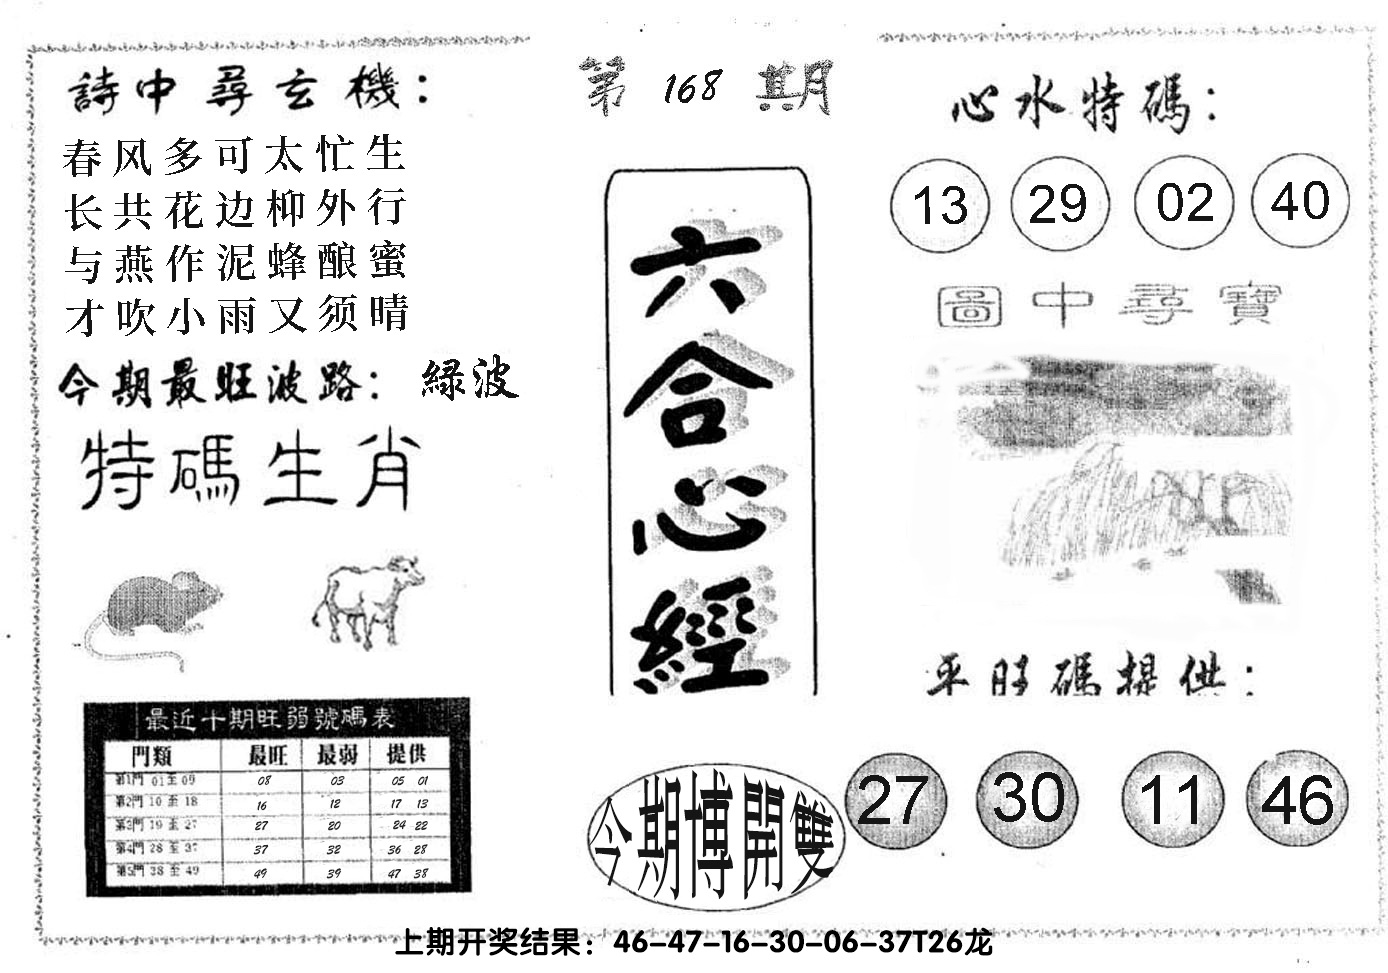 詩中尋玄機：
春风多可太忙生
长共花边柳外行
与燕作泥蜂酿蜜
才吹小雨又须晴
今期最旺波路：綠波
特碼生肖
最近十期旺弱號碼表
門類 最旺 最弱 提供
第1門 01至09 08 03 05 01
第2門 10至18 16 12 17 13
第3門 19至27 27 20 24 22
第4門 28至37 37 32 36 28
第5門 38至49 49 39 47 38
第168期
六合心經
今期博開雙
心水特碼：
13 29 02 40
圖中尋寶
平旺碼提供：
27 30 11 46
上期开奖结果：46-47-16-30-06-37T26龙